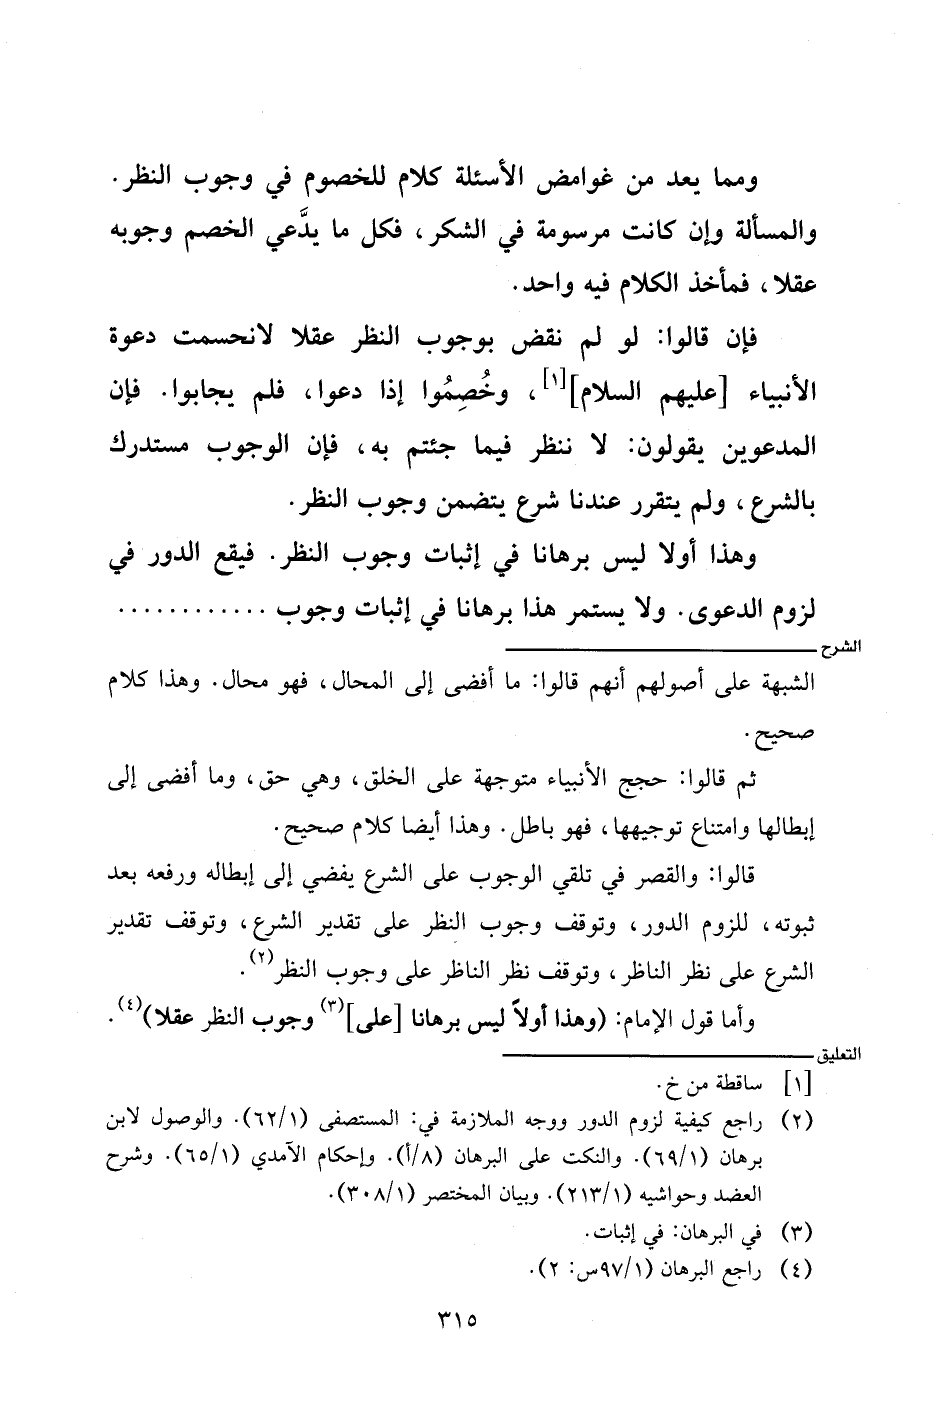 ومما يعد من غوامض الأسئلة كلام للخصوم في وجوب النظر.
والمسألة وإن كانت مرسومة في الشكر، فكل ما يدَّعي الخصم وجوبه
عقلا، فمأخذ الكلام فيه واحد.
فإن قالوا: لو لم نقض بوجوب النظر عقلا لانحسمت دعوة
الأنبياء [عليهم السلام][١]، وخُصِمُوا إذا دعوا، فلم يجابوا. فإن
المدعوين يقولون: لا ننظر فيما جئتم به، فإن الوجوب مستدرك
بالشرع، ولم يتقرر عندنا شرع يتضمن وجوب النظر.
وهذا أولا ليس برهانا في إثبات وجوب النظر. فيقع الدور في
لزوم الدعوى. ولا يستمر هذا برهانا في إثبات وجوب ............
الشرح
الشبهة على أصولهم أنهم قالوا: ما أفضى إلى المحال، فهو محال. وهذا كلام
صحيح.
ثم قالوا: حجج الأنبياء متوجهة على الخلق، وهي حق، وما أفضى إلى
إبطالها وامتناع توجيهها، فهو باطل. وهذا أيضا كلام صحيح.
قالوا: والقصر في تلقي الوجوب على الشرع يفضي إلى إبطاله ورفعه بعد
ثبوته، للزوم الدور، وتوقف وجوب النظر على تقدير الشرع، وتوقف تقدير
الشرع على نظر الناظر، وتوقف نظر الناظر على وجوب النظر(٢).
وأما قول الإمام: (وهذا أولاً ليس برهانا [على](٣) وجوب النظر عقلا)(٤).
التعليق
[١] ساقطة من خ.
(٢) راجع كيفية لزوم الدور ووجه الملازمة في: المستصفى (٦٢/١). والوصول لابن
برهان (٦٩/١). والنكت على البرهان (٨/أ). وإحكام الآمدي (٦٥/١). وشرح
العضد وحواشيه (٢١٣/١). وبيان المختصر (٣٠٨/١).
(٣) في البرهان: في إثبات.
(٤) راجع البرهان (٩٧/١س: ٢).
٣١٥